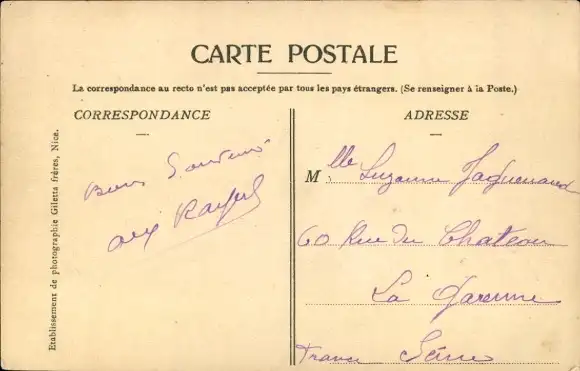 CARTE POSTALE
La correspondance au recto n'est pas acceptée par tous les pays étrangers. (Se renseigner à la Poste.)
CORRESPONDANCE
Bons
ADRESSE
Mlle Suzanne Jaquenaud
60 Rue du Chateau
La Garenne
France Seine
Etablissement de photographie Giletta frères, Nice.